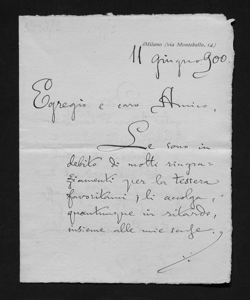 (Milano (via Montebello, 14)
11 giugno 900.
Egregio e caro Amico,
Le sono in
debito di molti ringra-
ziamenti per la tessera
favoritami; li accolga,
quantunque in ritardo,
insieme alle mie scuse.